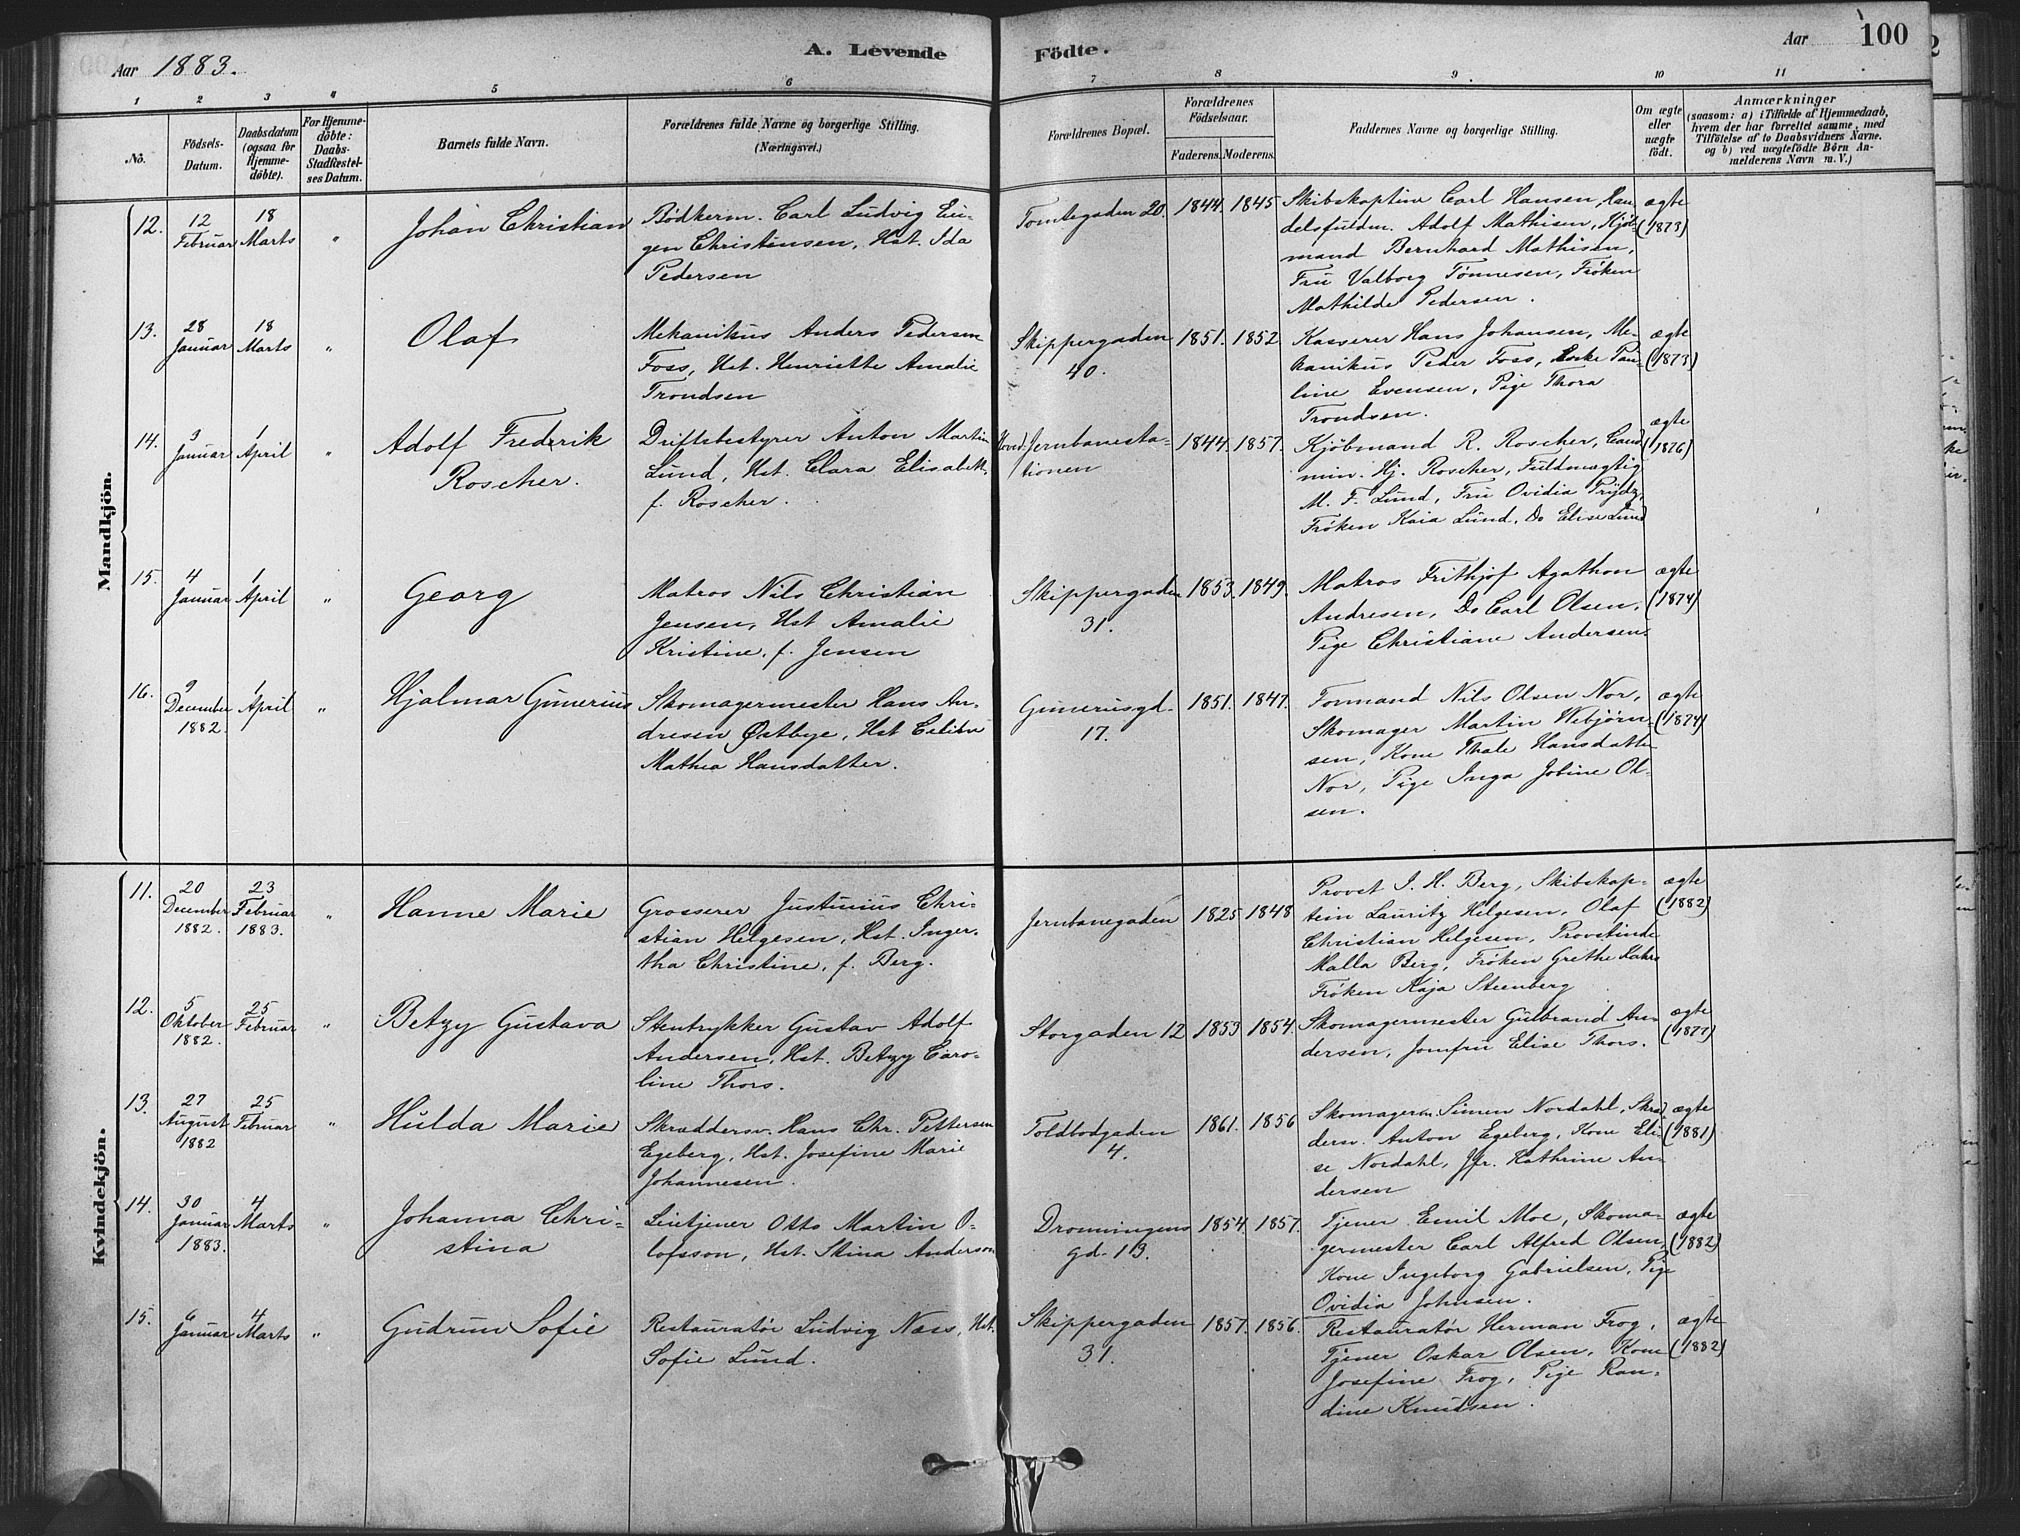 Aar 1883.
A. Levende
Födte.
Aar
100
1
2
3
4
5
6
7
8
9.
10
11
No.
Födsels-
Datum.
Daabsdatum
(ogsaa for
Hjemme-
döbte).
For Hjemme-
döbte:
Daabs-
Stadfæstel-
ses Datum.
Barnets fulde Navn.
Forældrenes fulde Navne og borgerlige Stilling.
(Næringsvei.)
Forældrenes Bopæl.
Forældrenes
Födselsaar.
Faderens.
Moderens.
Faddernes Navne og borgerlige Stilling.
Om ægte
eller
uægte
födt.
Anmærkninger
(saasom: a) i Tilfælde af Hjemmedaab,
hvem der har forrettet samme, med
Tilföielse af to Daabsvidners Navne.
og b) ved uægtefödte Börn An-
melderens Navn m. V.)
Mandkjön.
12.
12
Februar
18
Marts
"
Johan Christian
Bödkerm. Carl Ludvig Eu-
gen Christensen, Hst. Ida
Pedersen
Tomtegaden 20.
1844.
1845
Skibskaptein Carl Hansen, Han-
delsfuldm. Adolf Mathisen, Kjöb-
mand Bernhard Mathisen,
Fru Valborg Tönnesen, Fröken
Mathilde Pedersen.
ægte
(1873)
13.
28
Januar
18
Marts
"
Olaf
Mekanikus Anders Pedersen
Foss, Hst. Henriette Amalie
Trondsen
Skippergaden
40.
1851.
1852
Kasserer Hans Johansen, Me-
kanikus Peder Foss, Enke Pau-
line Evensen, Pige Thora
Trondsen.
ægte
(1873)
14.
3
Januar
1
April
"
Adolf Frederik
Roscher.
Driftsbestyrer Anton Martin
Lund, Hst. Clara Elisabeth,
f. Roscher.
Hoved-Jernbanesta-
tionen
1844.
1857.
Kjöbmand R. Roscher, Cand.
min. Hj. Roscher, Fuldmægtig
M. F. Lund, Fru Ovidia Prydz,
Fröken Kaia Lund, Do Elise Lund
ægte
(1876)
15.
4
Januar
1
April
"
Georg
Matros Nils Christian
Jensen, Hst Amalie
Kristine, f. Jensen
Skippergaden
31.
1853.
1849.
Matros Frithjof Agathon
Andresen, Do Carl Olsen,
Pige Christiane Andersen.
ægte
(1874)
16.
9
December
1882.
1
April
"
Hjalmar Gunerius
Skomagermester Hans An-
dresen Østbye, Hst
Mathea Hansdatter.
Gunerusgd.
17.
1851.
1847.
Formand Nils Olsen Nor,
Skomager Martin Webjörn-
sen, Kone Thale Hansdatter
Nor, Pige Inga Jobine Ol-
sen.
ægte
(1874)
Kvindekjön.
11.
20
December
1882.
23
Februar
1883.
"
Hanne Marie
Grosserer Justinius Chri-
stian Helgesen, Hst. Inger-
tha Christine, f. Berg.
Jernbanegaden
1825
1848
Provst I. H. Berg, Skibskap-
tein Lauritz Helgesen, Olaf
Christian Helgesen, Provstinde
Malla Berg, Fröken Grethe
Fröken Kaja Steenberg
ægte
(1882)
12.
5
Oktober
1882.
25
Februar
"
Betzy Gustava
Stentrykker Gustav Adolf
Andersen, Hst. Betzy Caro-
line Thors.
Storgaden 12
1853
1854.
Skomagermester Gulbrand An-
dersen, Jomfru Elise Thors.
ægte
(1877)
13.
27
August
1882
25
Februar
"
Hulda Marie
Skræddersv. Hans Chr. Pettersen
Egeberg, Hst. Josefine Marie
Johannesen.
Toldbodgaden
4.
1861.
1856
Skomagerm. Simen Nordahl, Skræ-
derm. Anton Egeberg, Kone Eli-
se Nordahl, Jfr. Kathrine An-
dersen
ægte
(1881)
14.
30
Januar
1883.
4
Marts
"
Johanna Chri-
stina
Lietjener Otto Martin O-
lofsson, Hst. Stina Anderson
Dronningens
gd. 13.
1854.
1857.
Tjener Emil Moe, Skoma-
germester Carl Alfred Olsen,
Kone Ingeborg Gabrielsen, Pige
Ovidia Johnsen.
ægte
(1882)
15.
6
Januar
4
Marts
"
Gudrun Sofie
Restauratør Ludvig Næss, Hst.
Sofie Lund.
Skippergaden
31.
1857.
1856.
Restauratør Herman Frog,
Tjener Oskar Olsen, Kone
Josefine Frog, Pige Ran-
dine Knudsen.
ægte
(1882)